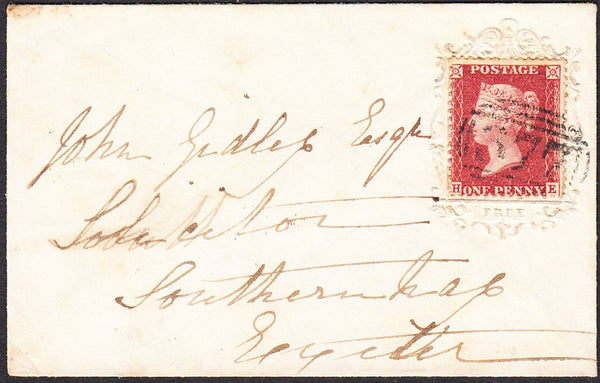 POSTAGE
John Gidley Esqr
H ONE PENNY E
FREE
Solicitor
Southernhay
Exeter